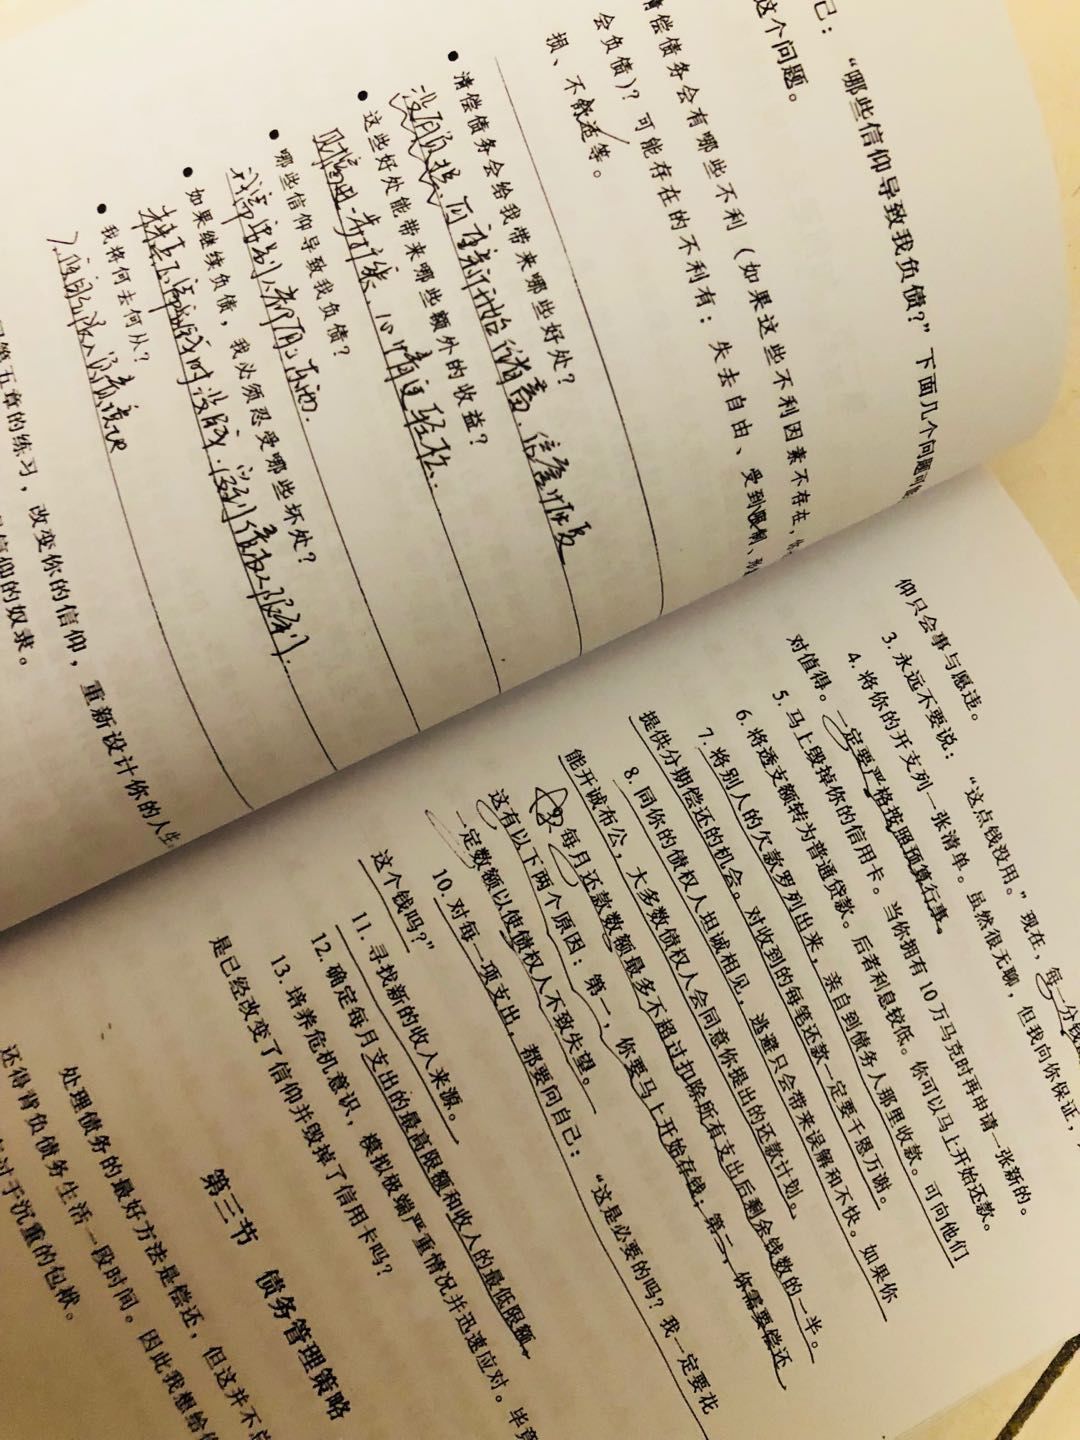 己：“哪些信仰导致我负债？”下面几个问题可能
这个问题。
清偿债务会有哪些不利（如果这些不利因素不存在，
会负债）？可能存在的不利有：失去自由、受到限制、
损、不舒适等。
● 清偿债务会给我带来哪些好处？
没有负担，可重新开始储蓄，信誉恢复
● 这些好处能带来哪些额外的收益？
● 哪些信仰导致我负债？
● 如果继续负债，我必须忍受哪些坏处？
● 我将何去何从？
第五章的练习，改变你的信仰，重新设计你的人生
信仰的奴隶。
仰只会事与愿违。
3. 永远不要说：“这点钱没用。”现在，每一分钱
4. 将你的开支列一张清单。虽然很无聊，但我向你保证，
对值得。一定要严格按照预算行事。
5. 马上毁掉你的信用卡。当你拥有10万马克时再申请一张新的。
6. 将透支额转为普通贷款。后者利息较低。你可以马上开始还款。
7. 将别人的欠款罗列出来，亲自到债务人那里收款。可向他们
提供分期偿还的机会。对收到的每笔还款一定要千恩万谢。
8. 同你的债权人坦诚相见，逃避只会带来误解和不快。如果你
能开诚布公，大多数债权人会同意你提出的还款计划。
9. 每月还款数额最多不超过扣除所有支出后剩余钱数的一半。
这有以下两个原因：第一，你要马上开始存钱；第二，你需要偿还
一定数额以使债权人不致失望。
10. 对每一项支出，都要问自己：“这是必要的吗？我一定要花
这个钱吗？”
11. 寻找新的收入来源。
12. 确定每月支出的最高限额和收入的最低限额。
13. 培养危机意识，模拟极端严重情况并迅速应对。毕竟
是已经改变了信仰并毁掉了信用卡吗？
第三节 债务管理策略
处理债务的最好方法是偿还，但这并不总
还得背负债务生活一段时间。因此我想给
过于沉重的包袱。